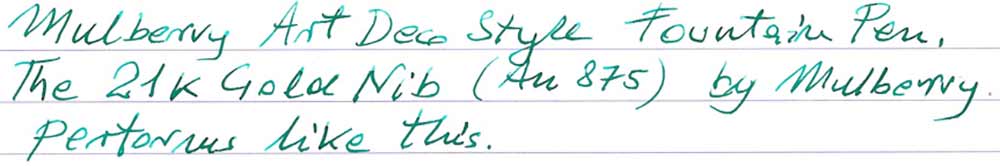 Mulberry Art Deco Style Fountain Pen.
The 21K Gold Nib (Au 875) by Mulberry.
Performs like this.